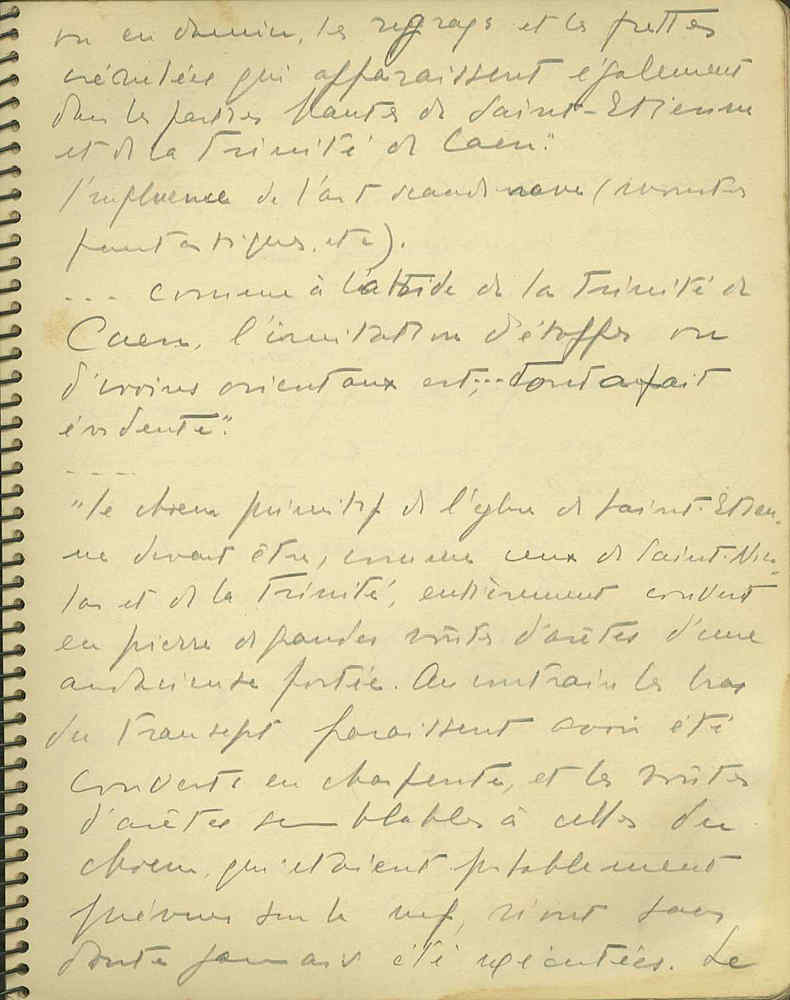 ou en damier, les zigzags et les frettes
crénelées qui apparaissent également
dans les parties hautes de Saint-Etienne
et de la Trinité de Caen."
l'influence de l'art scandinave (monstres
fantastiques, etc).
... comme à l'abside de la Trinité de
Caen, l'imitation d'étoffes ou
d'ivoires orientaux est,... tout à fait
évidente".
....
"Le choeur primitif de l'église de Saint-Etien-
ne devait être, comme ceux de Saint-Nico-
las et de la Trinité, entièrement couvert
en pierre de grandes voûtes d'arêtes d'une
audacieuse portée. Au contraire les bras
du transept paraissent avoir été
couverts en charpente, et les voûtes
d'arêtes semblables à celles du
choeur, qui étaient probablement
prévues sur la nef, n'ont sans
doute jamais été exécutées. Le